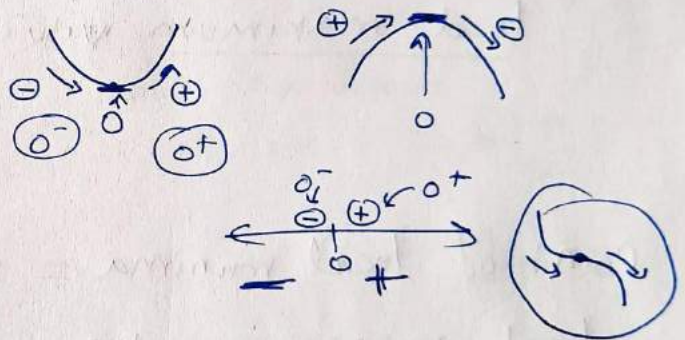 ⊕ ⊖
⊖ ⊕
0
0⁻ 0⁺
0
0⁻ 0⁺
⊖ ⊕
0
− +